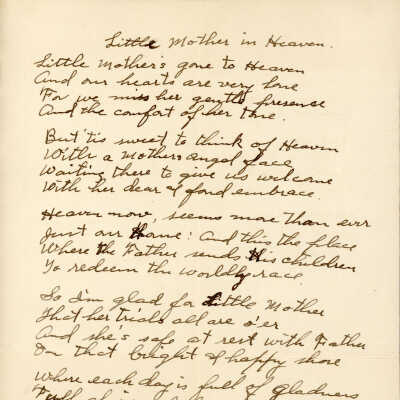 Little Mother in Heaven.
Little Mother's gone to Heaven
And our hearts are very lone
For we miss her gentle presence
And the comfort of her tone.
But 'tis sweet to think of Heaven
With a Mother's angel face
Waiting there to give us welcome
With her dear & fond embrace.
Heaven now, seems more than ever
Just our home! And this the place
Where the Father sends His children
To redeem the worldly race.
So I'm glad for Little Mother
That her trials all are o'er
And she's safe at rest with Father
On that bright & happy shore
Where each day is full of gladness
Full